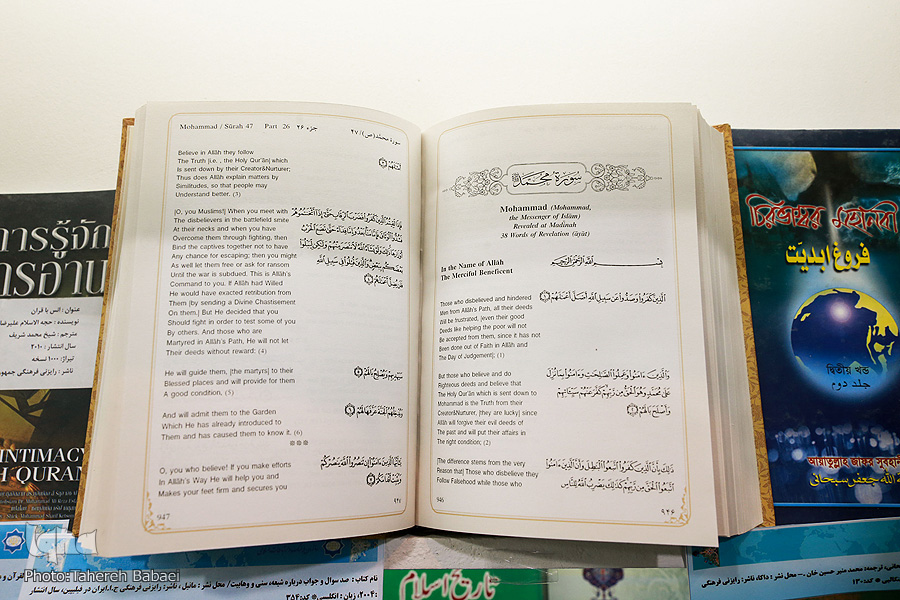 Mohammad / Sūrah 47 Part 26 جزء ۲۶ سوره محمّد(ص)/۴۷
Believe in Allāh they follow
The Truth [i.e. , the Holy Qur'ān] which
Is sent down by their Creator&Nurturer;
Thus does Allāh explain matters by
Similitudes, so that people may
Understand better. (3)
[O, you Muslims!] When you meet with
The disbelievers in the battlefield smite
At their necks and when you have
Overcome them through fighting, then
Bind the captives together not to have
Any chance for escaping; then you might
As well let them free or ask for ransom
Until the war is subdued. This is Allāh's
Command to you. If Allāh had Willed
He would have exacted retribution from
Them [by sending a Divine Chastisement
On them.] But He decided that you
Should fight in order to test some of you
By others. And those who are
Martyred in Allāh's Path, He will not let
Their deeds without reward: (4)
He will guide them, [the martyrs] to their
Blessed places and will provide for them
A good condition, (5)
And will admit them to the Garden
Which He has already introduced to
Them and has caused them to know it. (6)
***
O, you who believe! If you make efforts
In Allāh's Way He will help you and
Makes your feet firm and secures you
947
سورة محمد
Mohammad (Mohammad,
the Messenger of Islām)
Revealed at Madīnah
38 Words of Revelation (āyāt)
In the Name of Allāh
The Merciful Beneficent
بسم الله الرحمن الرحيم
Those who disbelieved and hindered
Men from Allāh's Path, all their deeds
Will be frustrated, [even their good
Deeds like helping the poor will not
Be accepted from them, since it has not
Been done out of Faith in Allāh and
The Day of Judgement]; (1)
But those who believe and do
Righteous deeds and believe that
The Holy Qur'ān which is sent down to
Mohammad is the Truth from their
Creator&Nurturer, [they are lucky] since
Allāh will forgive their evil deeds of
The past and will put their affairs in
The right condition; (2)
[The difference stems from the very
Reason that] Those who disbelieve they
Follow Falsehood while those who
الَّذِينَ كَفَرُوا وَصَدُّوا عَن سَبِيلِ اللَّهِ أَضَلَّ أَعْمَالَهُمْ
وَالَّذِينَ ءَامَنُوا وَعَمِلُوا الصَّالِحَاتِ وَءَامَنُوا بِمَا نُزِّلَ
عَلَىٰ مُحَمَّدٍ وَهُوَ الْحَقُّ مِن رَّبِّهِمْ كَفَّرَ عَنْهُمْ سَيِّئَاتِهِمْ
وَأَصْلَحَ بَالَهُمْ
ذَٰلِكَ بِأَنَّ الَّذِينَ كَفَرُوا اتَّبَعُوا الْبَاطِلَ وَأَنَّ الَّذِينَ ءَامَنُوا
اتَّبَعُوا الْحَقَّ مِن رَّبِّهِمْ كَذَٰلِكَ يَضْرِبُ اللَّهُ لِلنَّاسِ
946
۹۴۶
การรู้จัก
عنوان: انس با قرآن
مترجم: شیخ محمد شریف
سال انتشار: ۲۰۱۰
تیراژ: ۱۰۰۰ نسخه
INTIMACY
H QURAN
চিরভাস্বর মহানবী
فروغ ابدیّت
দ্বিতীয় খন্ড
جلد دوم
تاریخ اسلام
Photo: Tahereh Babaei